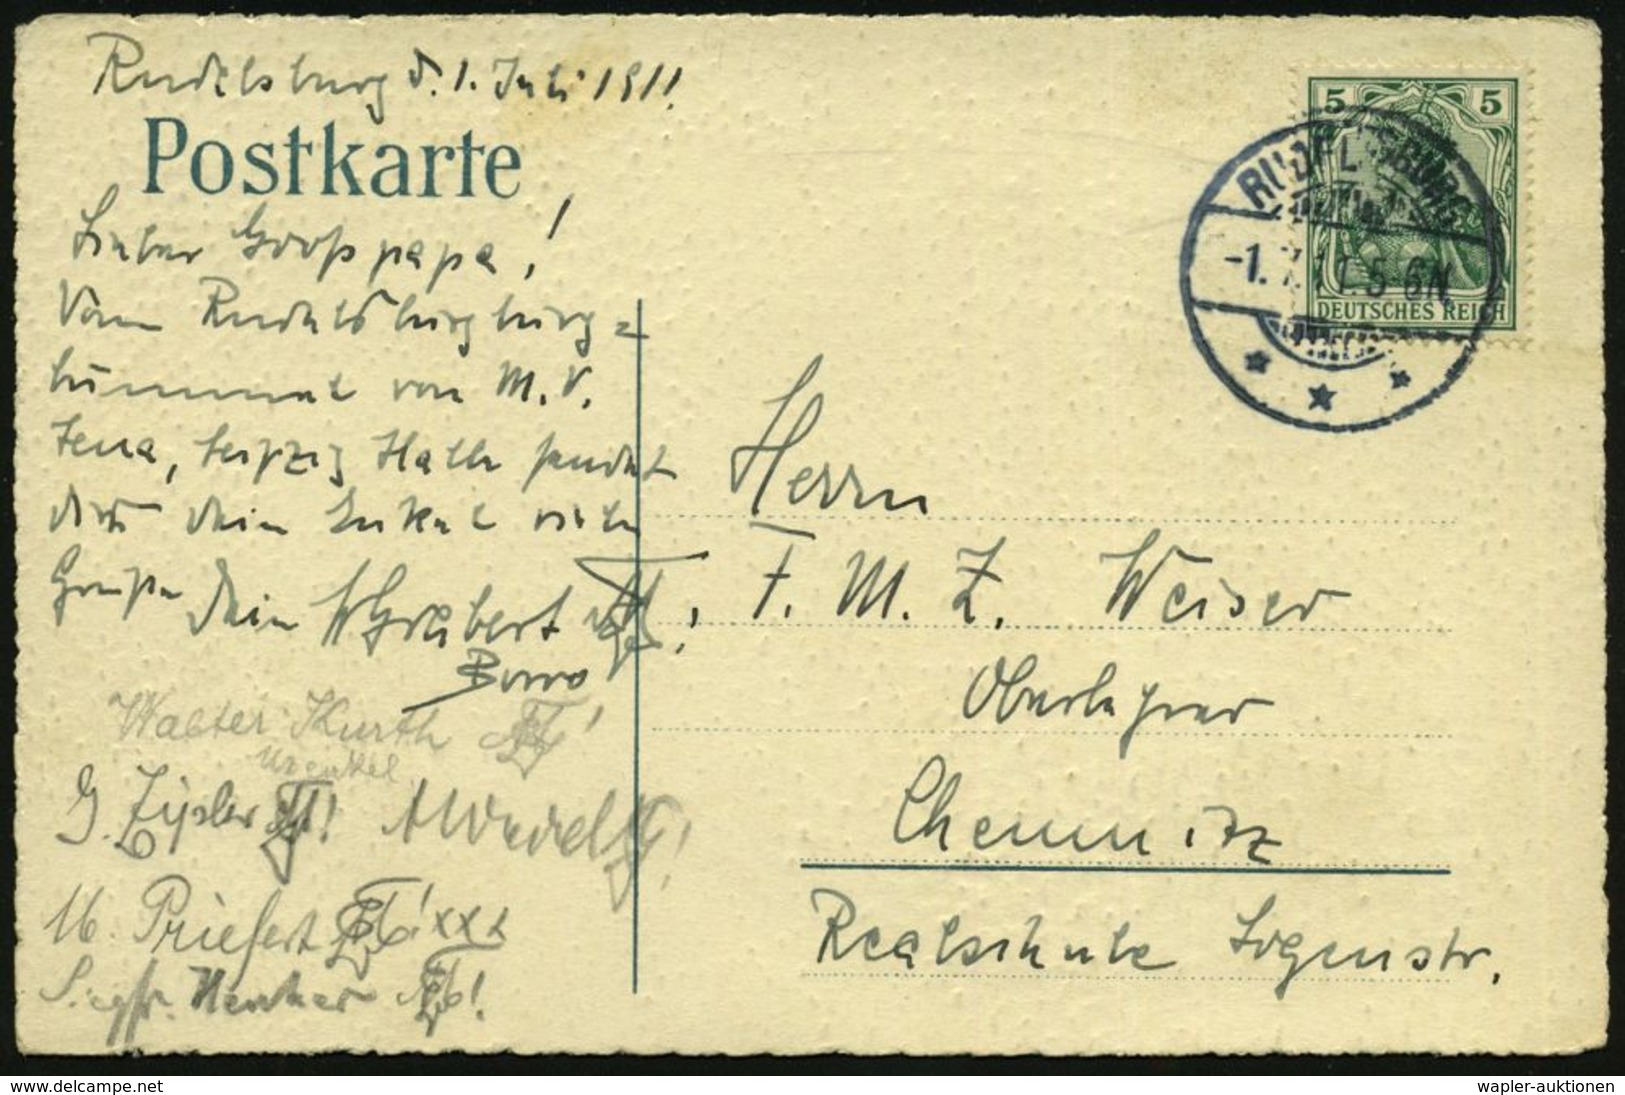 Rudelsburg d. 1. Juli 1911.
Postkarte
Lieber Grosspapa!
Vom Rudelsburgburg=
bummel von M.V.
Jena, Leipzig Halle sendet
dir dein Enkel viele
Grüße Dein
Walter Kurth
Urenkel
G. Zipsler
M. Priefert xxx
Siegfr.
5 5
DEUTSCHES REICH
RUDELSBURG
-1. 7. 11. 5-6N.
Herrn
F. M. Z. Weiser
Oberlehrer
Chemnitz
Realschule Logenstr.
www.delcampe.net
wapler-auktionen